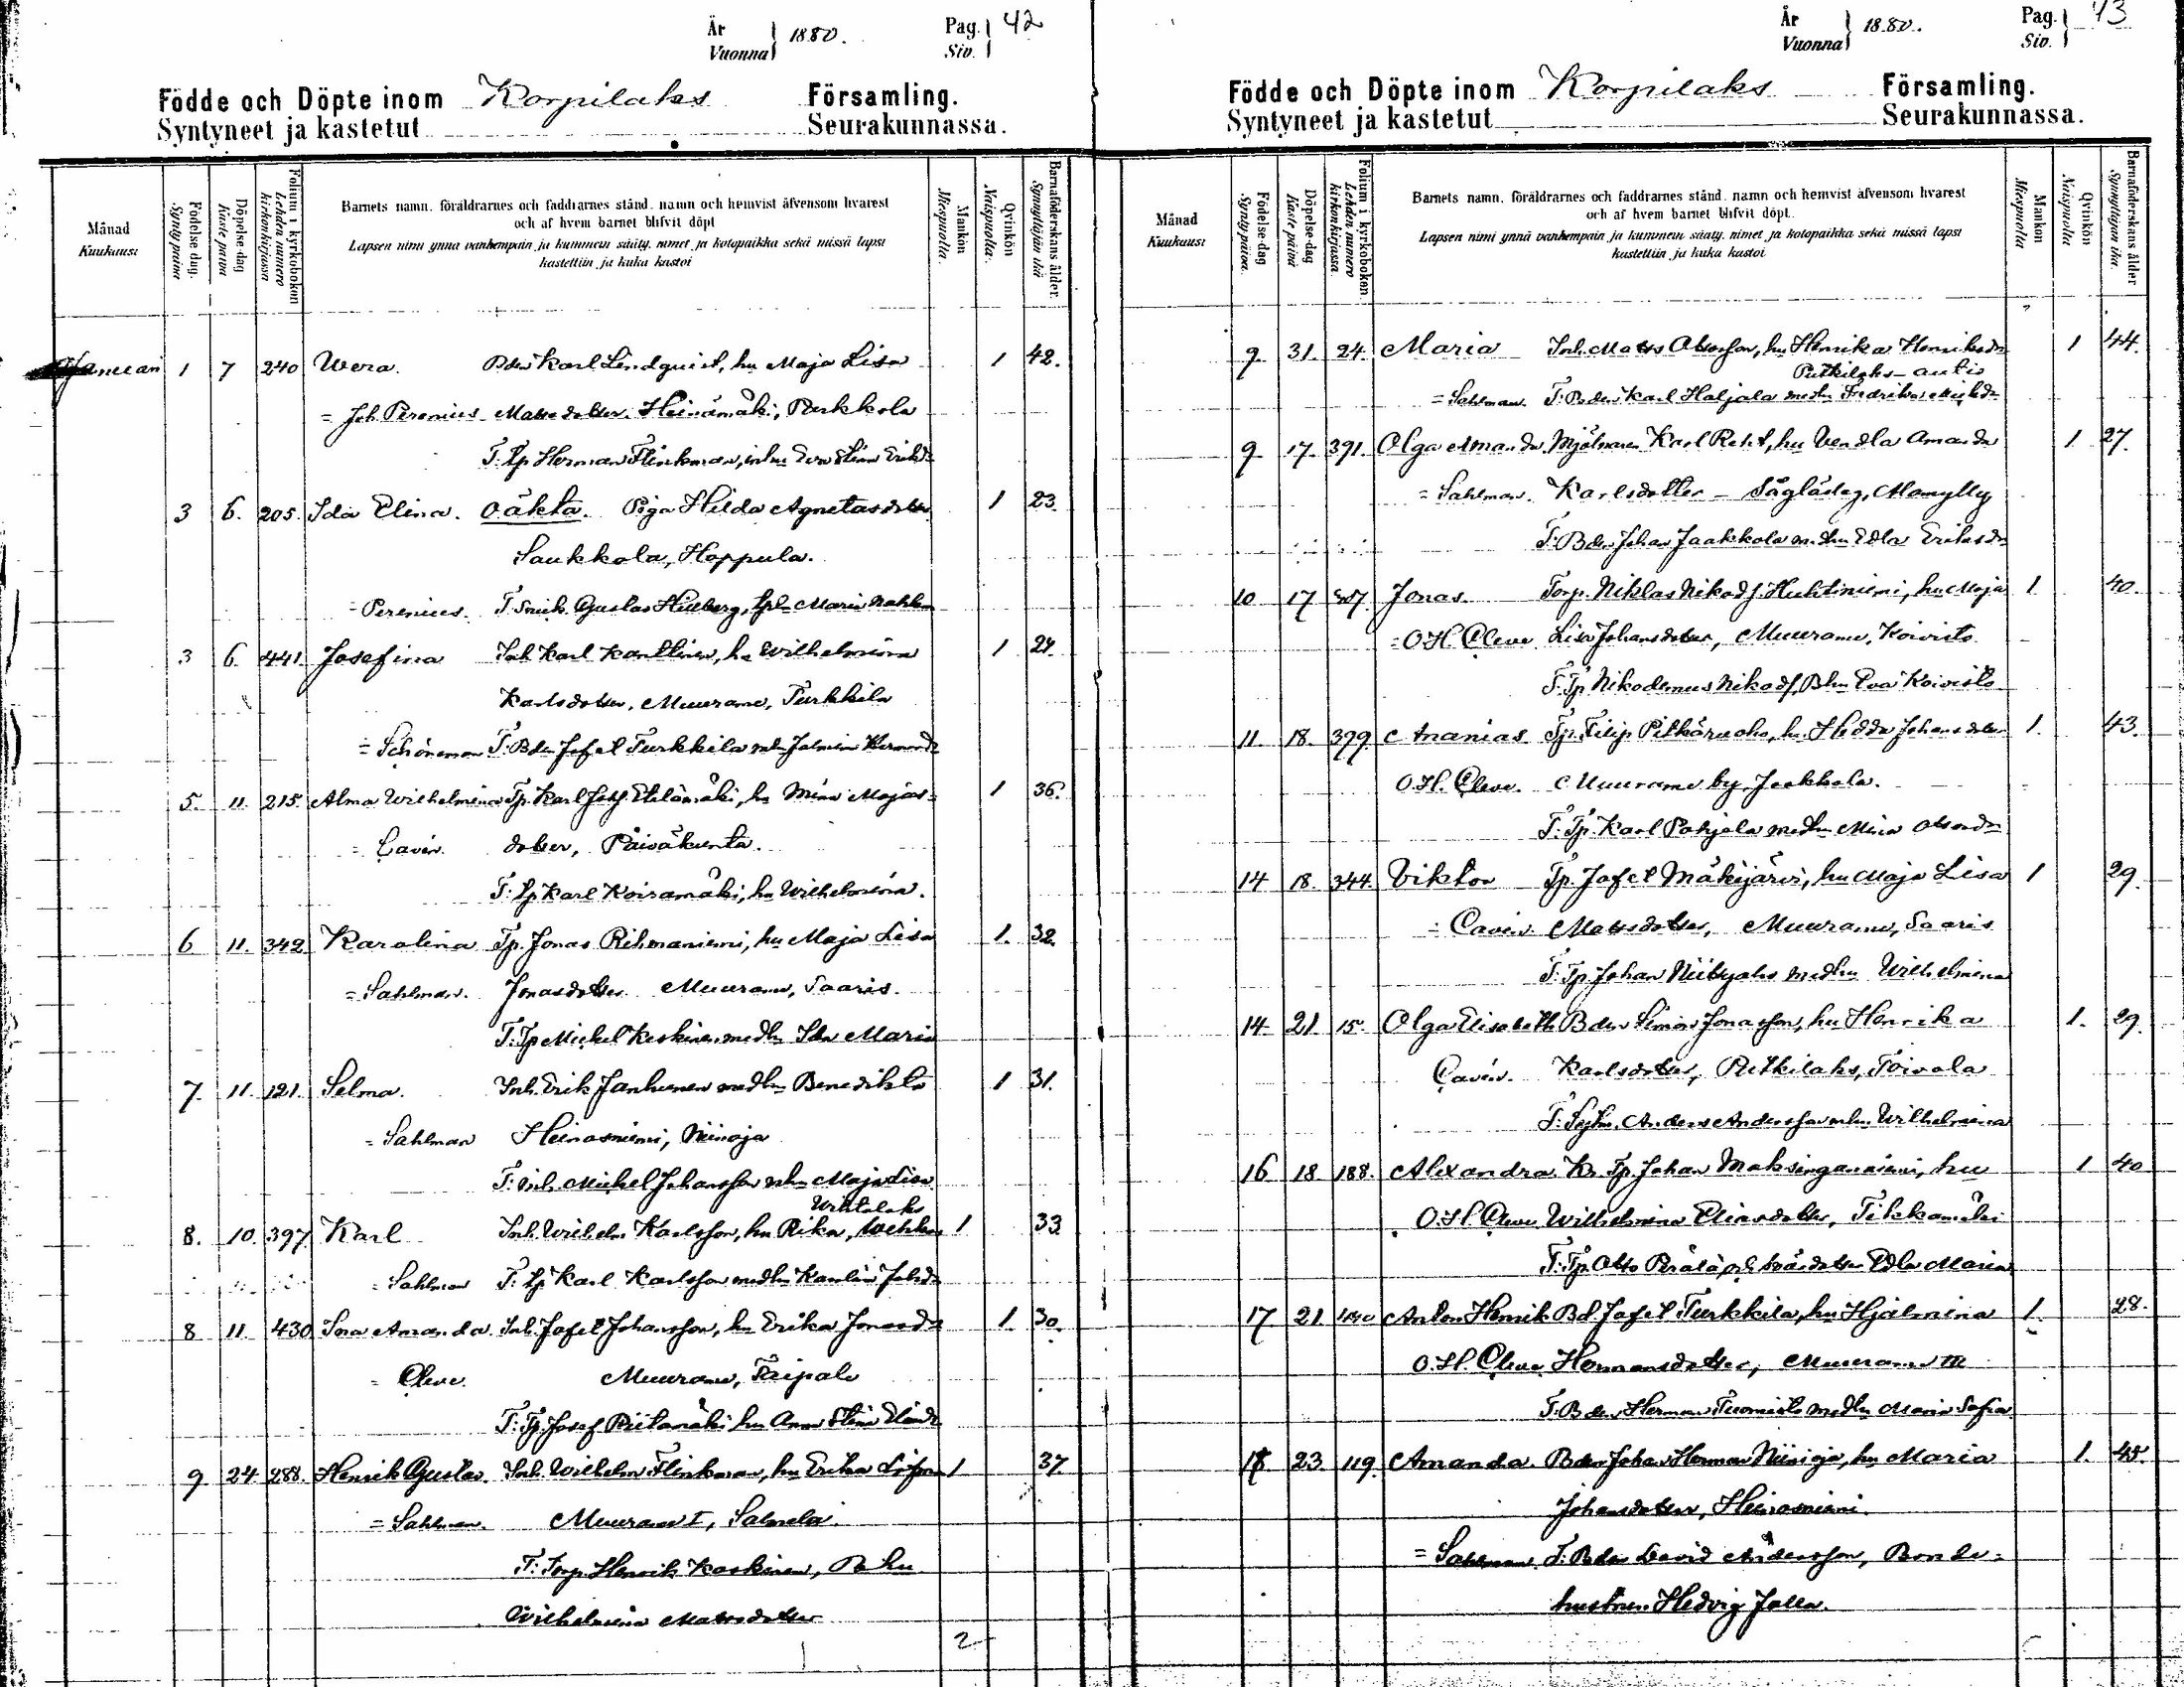 År
Vuonna } 1880.
Pag.
Siv. } 42
Födde och Döpte inom Korpilaks Församling.
Syntyneet ja kastetut Seurakunnassa.
Månad
Kuukausi
Födelse dag.
Synty päivä
Döpelse-dag
Kaste päivä
Folium i kyrkoboken
Lehden numero
kirkonkirjassa
Barnets namn. föräldrarnes och faddrarnes stånd. namn och hemvist äfvensom hvarest
och af hvem barnet blifvit döpt
Lapsen nimi ynnä vanhempain ja kummein sääty. nimet ja kotopaikka sekä missä lapsi
kastettiin ja kuka kastoi
Mankön
Miespuolta.
Qvinkön
Naispuolta.
Barnaföderskans ålder.
Synnyttäjän ikä
Januari 1 7 240 Wera. Bdn Karl Lindquist, hu Maja Lisa 1 42.
= Joh. Perenius Matsdotter. Heinämäki, Perkkola
T. Tp Herman Flinkman, Eva Stina Eriksd.
3 6. 205. Ida Elina. Oäkta. Piga Hilda Agnetasdotter. 1 23.
Saukkola, Hoppula.
= Perenius. T. Snick. Gustaf Hillberg, Maria
3 6. 441. Josefina Inh. Karl Kanttinen, hu Wilhelmina 1 24.
Karlsdotter, Muurame, Turkkila
= Schöneman T. Bdn Jafet Turkkila mhu Jalmina Hermansd
5. 11. 215. Alma Wilhelmina Tp. Karl Etelämäki, hu Mina Majas- 1 36.
= Cavén. dotter, Päiväkunta.
T. Tp Karl Koiramäki, hu Wilhelmina.
6 11. 342 Karolina Tp. Jonas Rihmaniemi, hu Maja Lisa 1. 32.
= Sahlman. Jonasdotter Muurame, Saaris.
T. Tp Mickel Keskinen medhu Ida Maria
7. 11. 121. Selma. Inh. Erik Janhunen medhu Benedikta 1 31.
= Sahlman Heinosniemi, Niinoja
T. inh. Mickel Johansson mhu Maja Lisa
8. 10. 397. Karl Inh. Wilhelm Karlsson, hu Rika, 1 33
= Sahlman T. Tp Karl Karlsson medhu Karolina Johsd.
8 11. 430 Ina Amanda. Inh. Jafet Johansson, hu Erika Jonasd. 1. 30.
= Cleve. Muurame, Taipale
T. Tp. Josef Riitamäki hu Anna Stina
9 24. 288. Henrik Gustav. Inh. Wilhelm Flinkman, hu Erika 1 37.
= Sahlman. Muurame I, Salmela.
T. Torp. Henrik Koskinen, B hu
Wilhelmina Matsdotter
2
År
Vuonna } 1880.
Pag.
Siv. } 43
Födde och Döpte inom Korpilaks Församling.
Syntyneet ja kastetut Seurakunnassa.
Månad
Kuukausi
Födelse-dag
Synty päivä.
Döpelse-dag
Kaste päivä
Folium i kyrkoboken
Lehden numero
kirkonkirjassa.
Barnets namn. föräldrarnes och faddrarnes stånd. namn och hemvist äfvensom hvarest
och af hvem barnet blifvit döpt.
Lapsen nimi ynnä vanhempain ja kummein sääty. nimet ja kotopaikka sekä missä lapsi
kastettiin ja kuka kastoi
Mankön
Miespuolta
Qvinkön
Naispuolta
Barnaföderskans ålder
Synnyttäjän ikä.
9. 31. 24. Maria Inh. Matts Ottosson, hu Henrika Henriksd. 1 44.
Putkilaks autio
= Sahlman. T. Bdn Karl Haljala medhu Fredrika
9. 17. 391. Olga Amanda Mjölnaren Karl Reht, hu Vendla Amanda 1 27.
= Sahlman. Karlsdotter – Sågläseg, Mamylly
T. Bdn Johan Jaakkola medhu Edla Eriksd.
10 17 Jonas. Torp. Niklas Nikod. Huhtiniemi, hu Maja 1. 40.
= O.H. Cleve Lisa Johansdotter, Muurame, Koivisto
T. Tp Nikodemus Nikod, Bhu Eva Koivisto
11. 18. 399 Ananias Tp. Filip Pitkäruoho, hu Hedda Johansdotter 1. 43.
O.H. Cleve. Muurame by Jaakkola.
T. Tp. Karl Pohjola medhu Mina Ottosd.
14 18. 344. Viktor Tp. Jafet Mäkijärvi, hu Maja Lisa 1 29.
= Cavén Matsdotter, Muurame, Saaris
T. Tp Johan Niitynaho medhu Wilhelmina
14. 21. 15. Olga Elisabeth Bdn Simon Jonasson, hu Henrika 1. 29.
Cavén. Karlsdotter, Putkilaks, Toivola
T. Anders Andersson mhu Wilhelmina
16 18 188. Alexandra Kr. Tp. Johan Maksinganiemi, hu 1 40
O.H. Cleve Wilhelmina Eliasdotter, Tikkamäki
T. Tp. Otto Perälä Edla Maria
17 21 440 Anton Henrik Bd. Jafet Turkkila, hu Hjalmina 1. 28.
O.H. Cleve Hermansdotter, Muurame III
T. Bdn Herman Tuomisto medhu Maria Sofia
18 23. 119. Amanda Bdn Johan Herman Niinioja, hu Maria 1. 45.
Johansdotter, Heinosniemi.
= Sahlman. T. Bdn David Andersson, Bonde-
hustrun Hedvig Jalla.